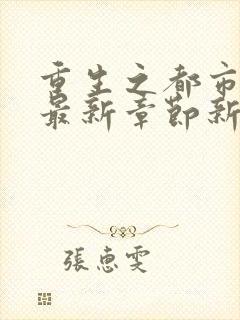 重生之都市
最新章節新
張惠雯